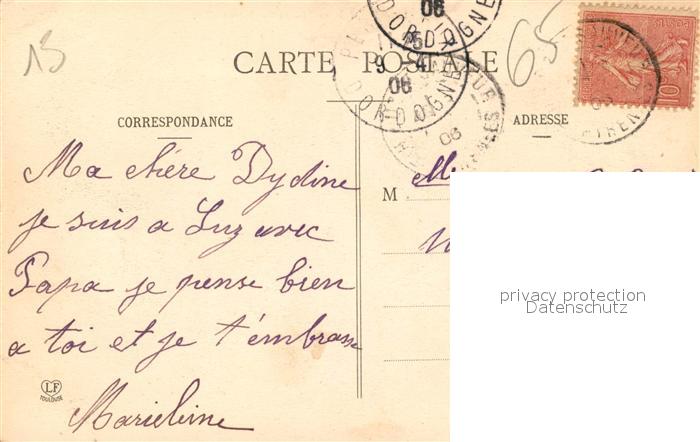 15
65
CARTE POSTALE
DORDOGNE
06
15
9 4
06
DORDOGNE
06
10
CORRESPONDANCE
ADRESSE
Ma chère Dydine
je suis a Luz avec
Papa je pense bien
a toi et je t'émbrasse
M
LF
TOULOUSE
privacy protection
Datenschutz